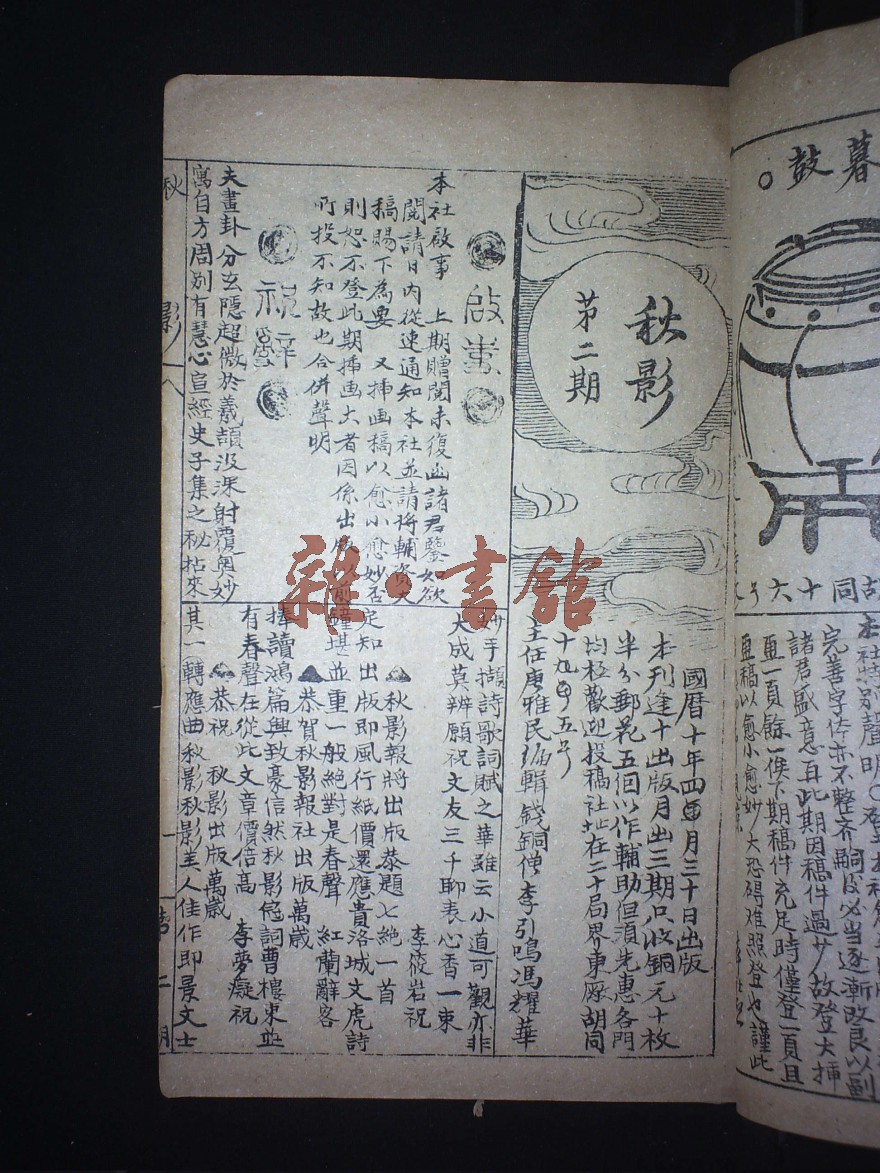 暮鼓。
胡同十六号
本社特别聲明〇
完善字体亦不整齐嗣後必当逐漸改良以副
諸君盛意耳此期因稿件過少故登大揷
畫一頁餘一俟下期稿件充足時僅登一頁且
畫稿以愈小愈妙大恐碍难照登也謹此
秋影
第二期
國曆十年四月三十日出版
本刊逢十出版月出三期只收銅元十枚
半分郵花五個以作輔助但須先惠各門
均極歡迎投稿社址在二十局界東廠胡同
十九號五号
主任唐雅民編輯錢銅僧李引鳴馮耀華
啟事
本社啟事 上期贈閱未復函諸君鑒如欲
閱請日內從速通知本社並請将輔資大
稿賜下為要 又揷画稿以愈小愈妙否
則恕不登此期揷画大者因係出版以前
所投不知故也合併聲明
祝辭
夫畫卦分玄隱超微於羲頡汲深射覆奥妙
寓自方周别有慧心宣經史子集之秘拈來
妙手擷詩歌詞賦之華雖云小道可觀亦非
大成莫辨願祝文友三千聊表心香一束
李筱岩祝
秋影報將出版恭題七絶一首
定知出版即風行紙價還應貴洛城文虎詩
鐘堪並重一般絶對是春聲 紅蘭辭客
恭賀秋影報社出版萬歲
捧讀鴻篇興致豪信然秋影冠詞曹樓東並
有春聲在從此文章價倍高 李夢癡祝
恭祝 秋影出版萬歲
其一轉應曲秋影秋影主人佳作即景文士
秋影 八 第二期
雜·書館